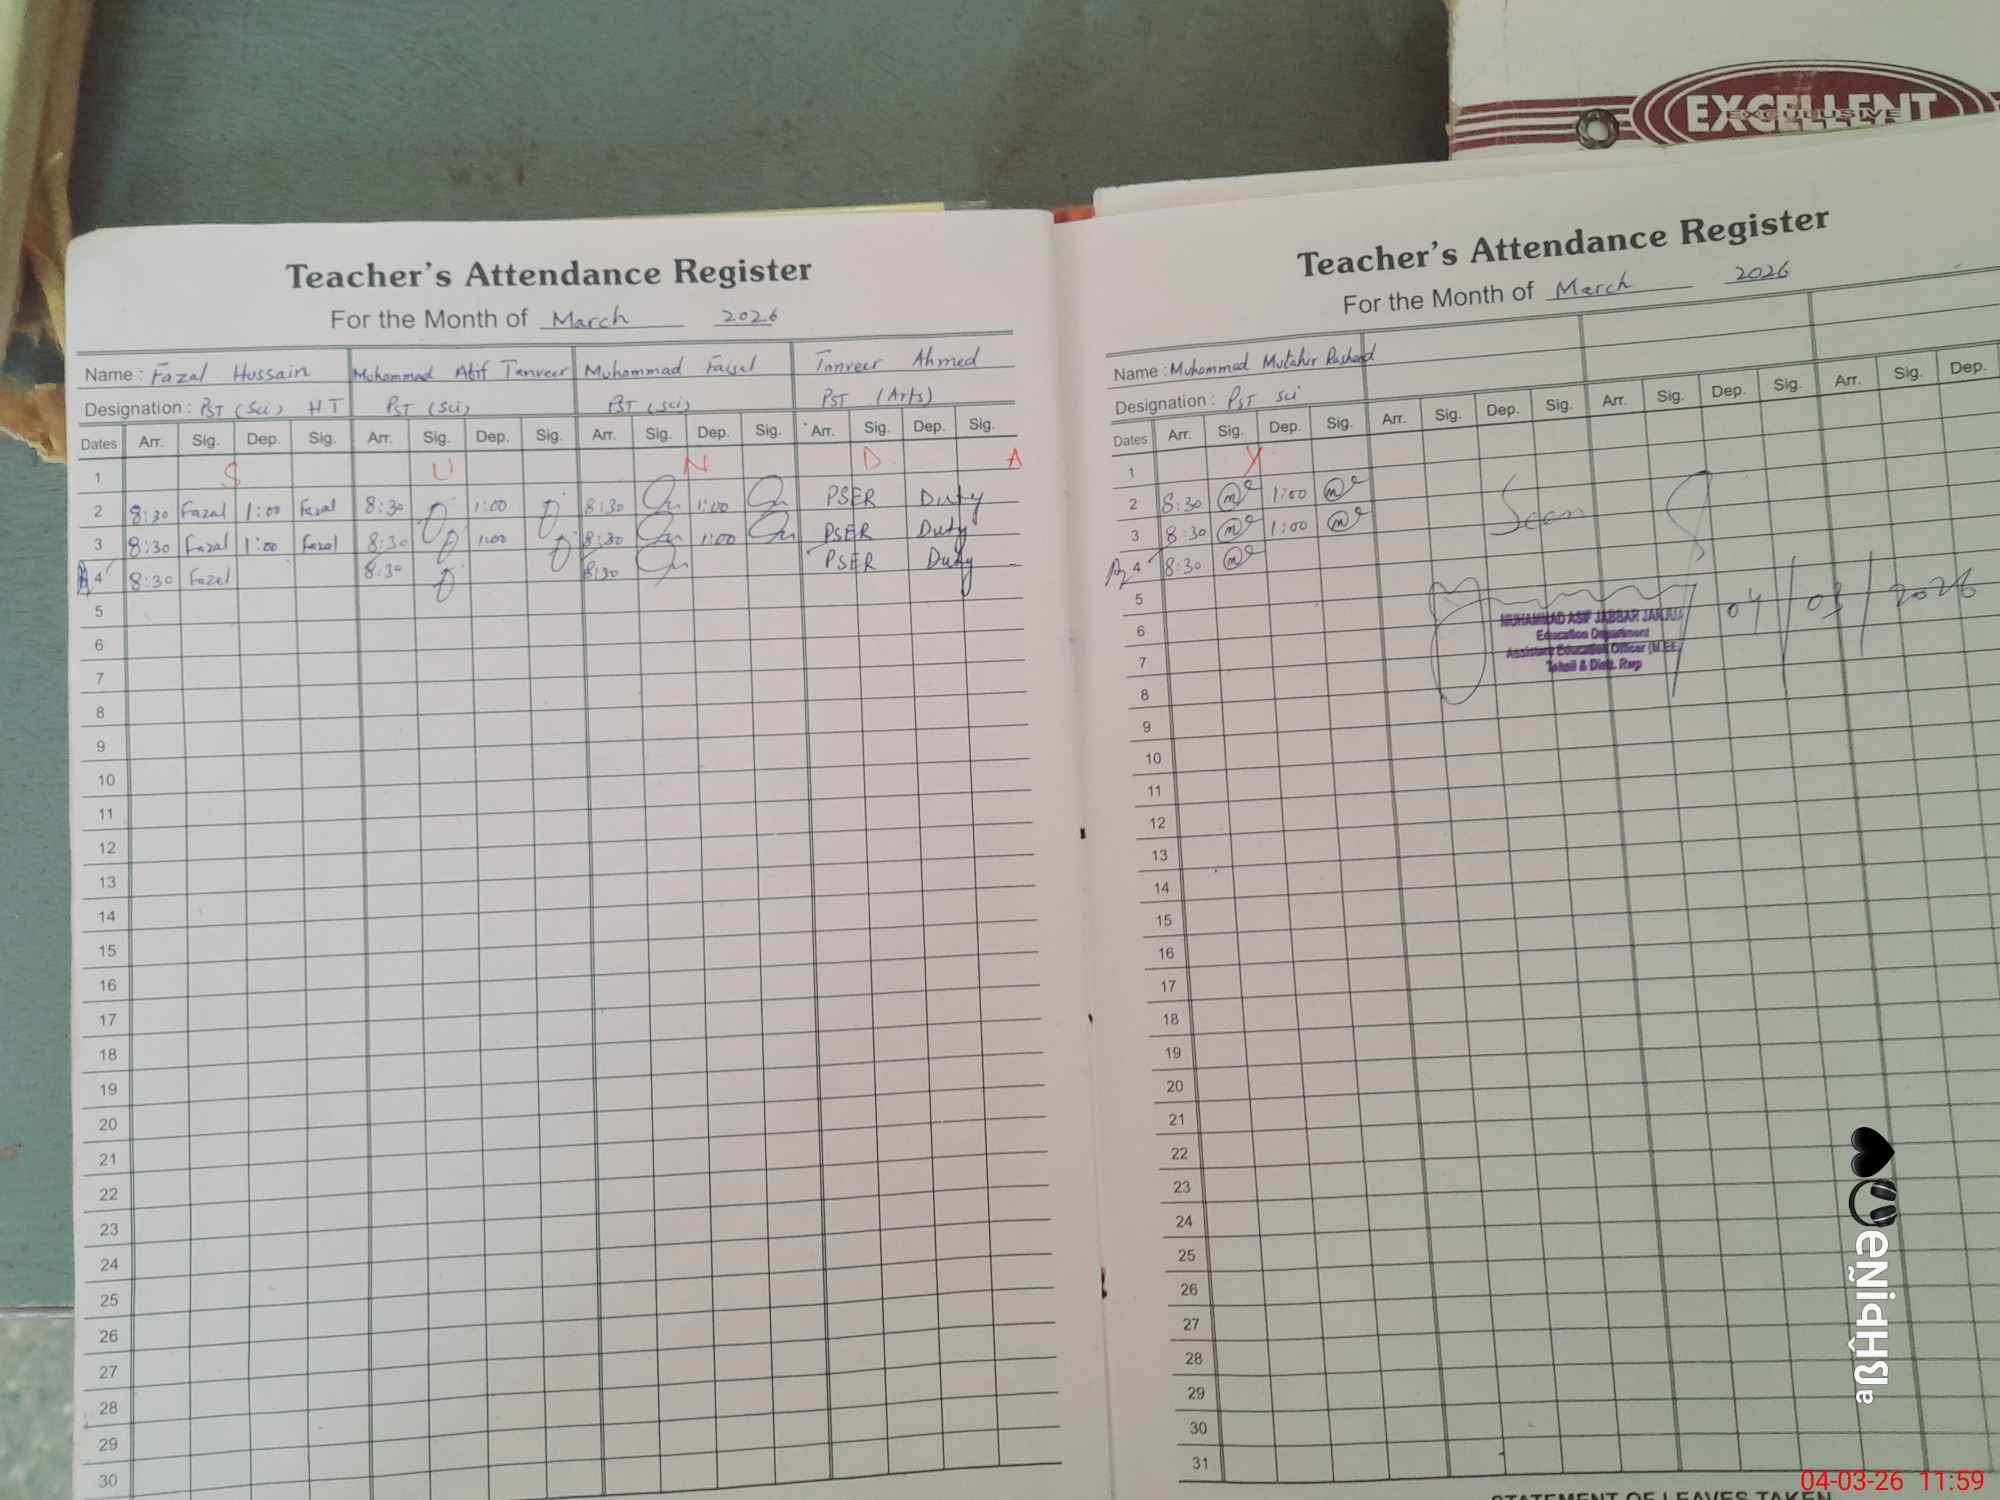 EXCELLENT
EXCULUSIVE
Teacher's Attendance Register
For the Month of March 2026
Name : Fazal Hussain Muhammad Atif Tanveer Muhammad Faisal Tanveer Ahmed
Designation : PST (Sci) H.T PST (Sci) PST (sci) PST (Arts)
Dates Arr. Sig. Dep. Sig. Arr. Sig. Dep. Sig. Arr. Sig. Dep. Sig. Arr. Sig. Dep. Sig.
1 S U N D A
2 8:30 Fazal 1:00 Fazal 8:30 1:00 8:30 1:00 PSER Duty
3 8:30 Fazal 1:00 Fazal 8:30 1:00 8:30 1:00 PSER Duty
4 8:30 Fazal 8:30 8:30 PSER Duty
5
6
7
8
9
10
11
12
13
14
15
16
17
18
19
20
21
22
23
24
25
26
27
28
29
30
Teacher's Attendance Register
For the Month of March 2026
Name : Muhammad Mutahir Rasheed
Designation : PST Sci
Dates Arr. Sig. Dep. Sig. Arr. Sig. Dep. Sig. Arr. Sig. Dep. Sig. Arr. Sig. Dep.
1 Y
2 8:30 1:00
3 8:30 1:00 Seen
4 8:30
5
6
7
8
04/03/2026
MUHAMMAD ASIF JABBAR JANJUA
Education Department
Assistant Education Officer (M.EE)
Tehsil & Distt. Rwp
9
10
11
12
13
14
15
16
17
18
19
20
21
22
23
24
25
26
27
28
29
30
31
STATEMENT OF LEAVES TAKEN
04-03-26 11:59